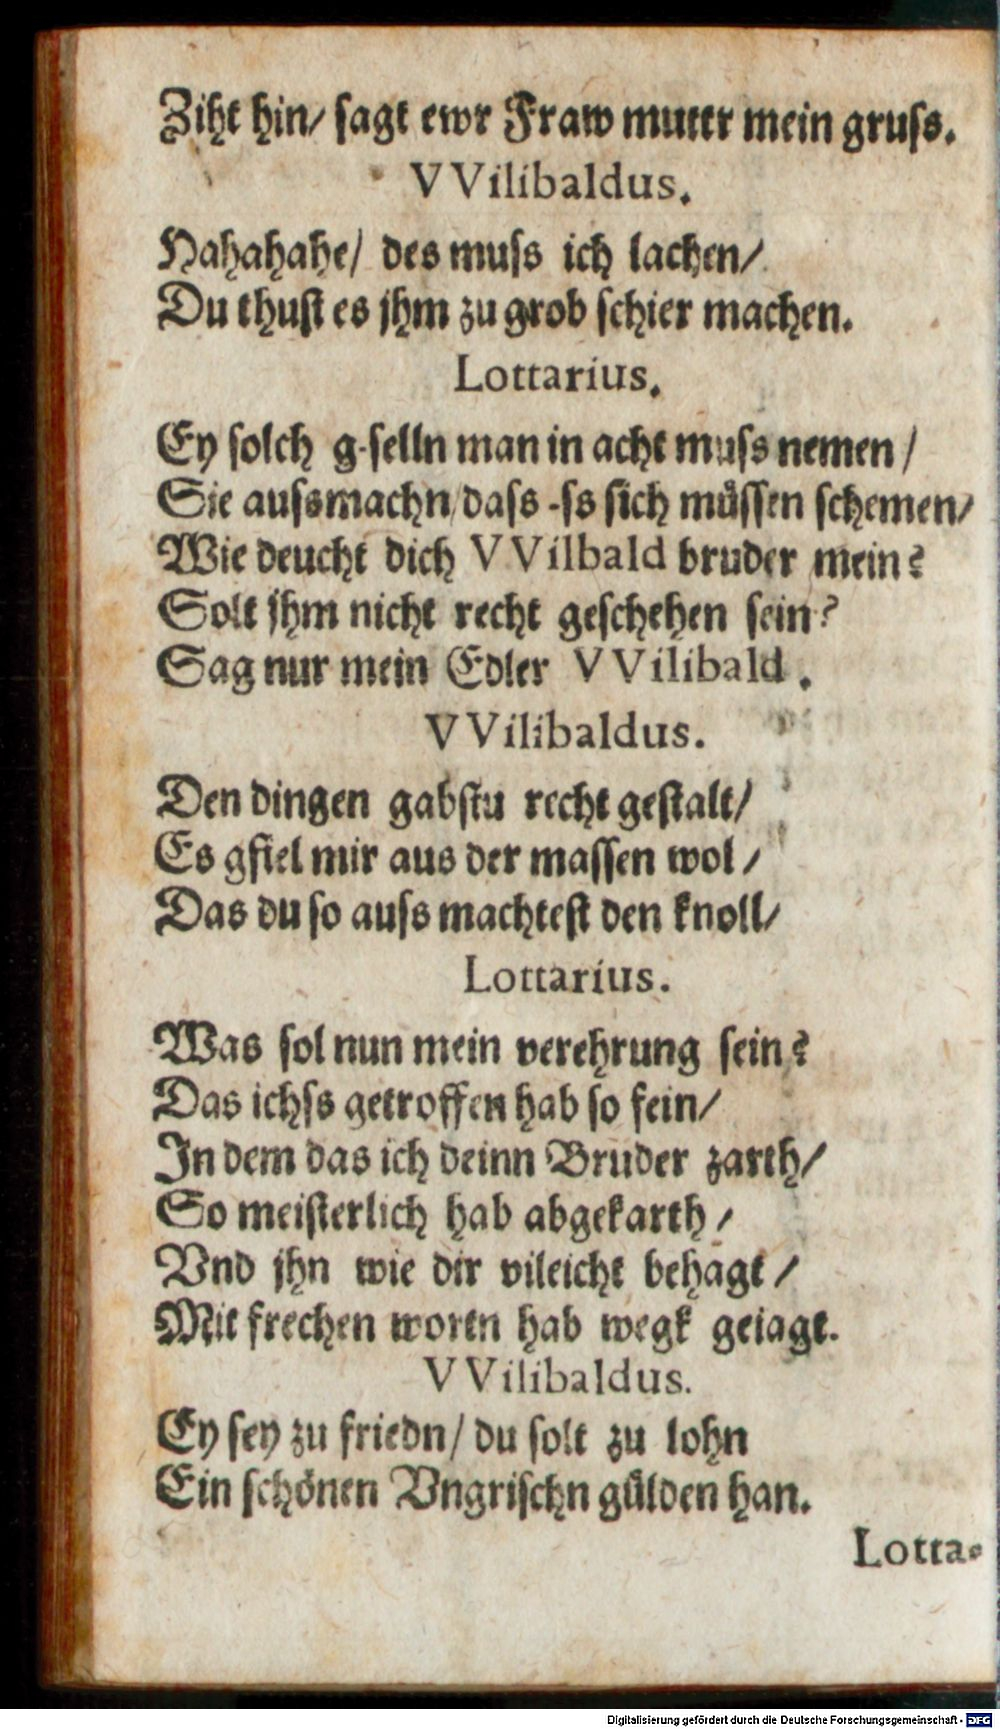 Ziht hin/ sagt ewr Fraw muttr mein gruss.
VVilibaldus.
Hahahahe/ des muss ich lachen/
Du thust es jhm zu grob schier machen.
Lottarius.
Ey solch g-selln man in acht muss nemen/
Sie aussmachn/ dass -ss sich müssen schemen/
Wie deucht dich VVilbald bruder mein?
Solt jhm nicht recht geschehen sein?
Sag nur mein Edler VVilibald.
VVilibaldus.
Den dingen gabstu recht gestalt/
Es gfiel mir aus der massen wol/
Das du so auss machtest den knoll/
Lottarius.
Was sol nun mein verehrung sein?
Das ichss getroffen hab so fein/
In dem das ich deinn Bruder zarth/
So meisterlich hab abgekarth/
Vnd jhn wie dir vileicht behagt/
Mit frechen wortn hab wegk geiagt.
VVilibaldus.
Ey sey zu friedn/ du solt zu lohn
Ein schönen Vngrischn gülden han.
Lotta-
Digitalisierung gefördert durch die Deutsche Forschungsgemeinschaft - DFG